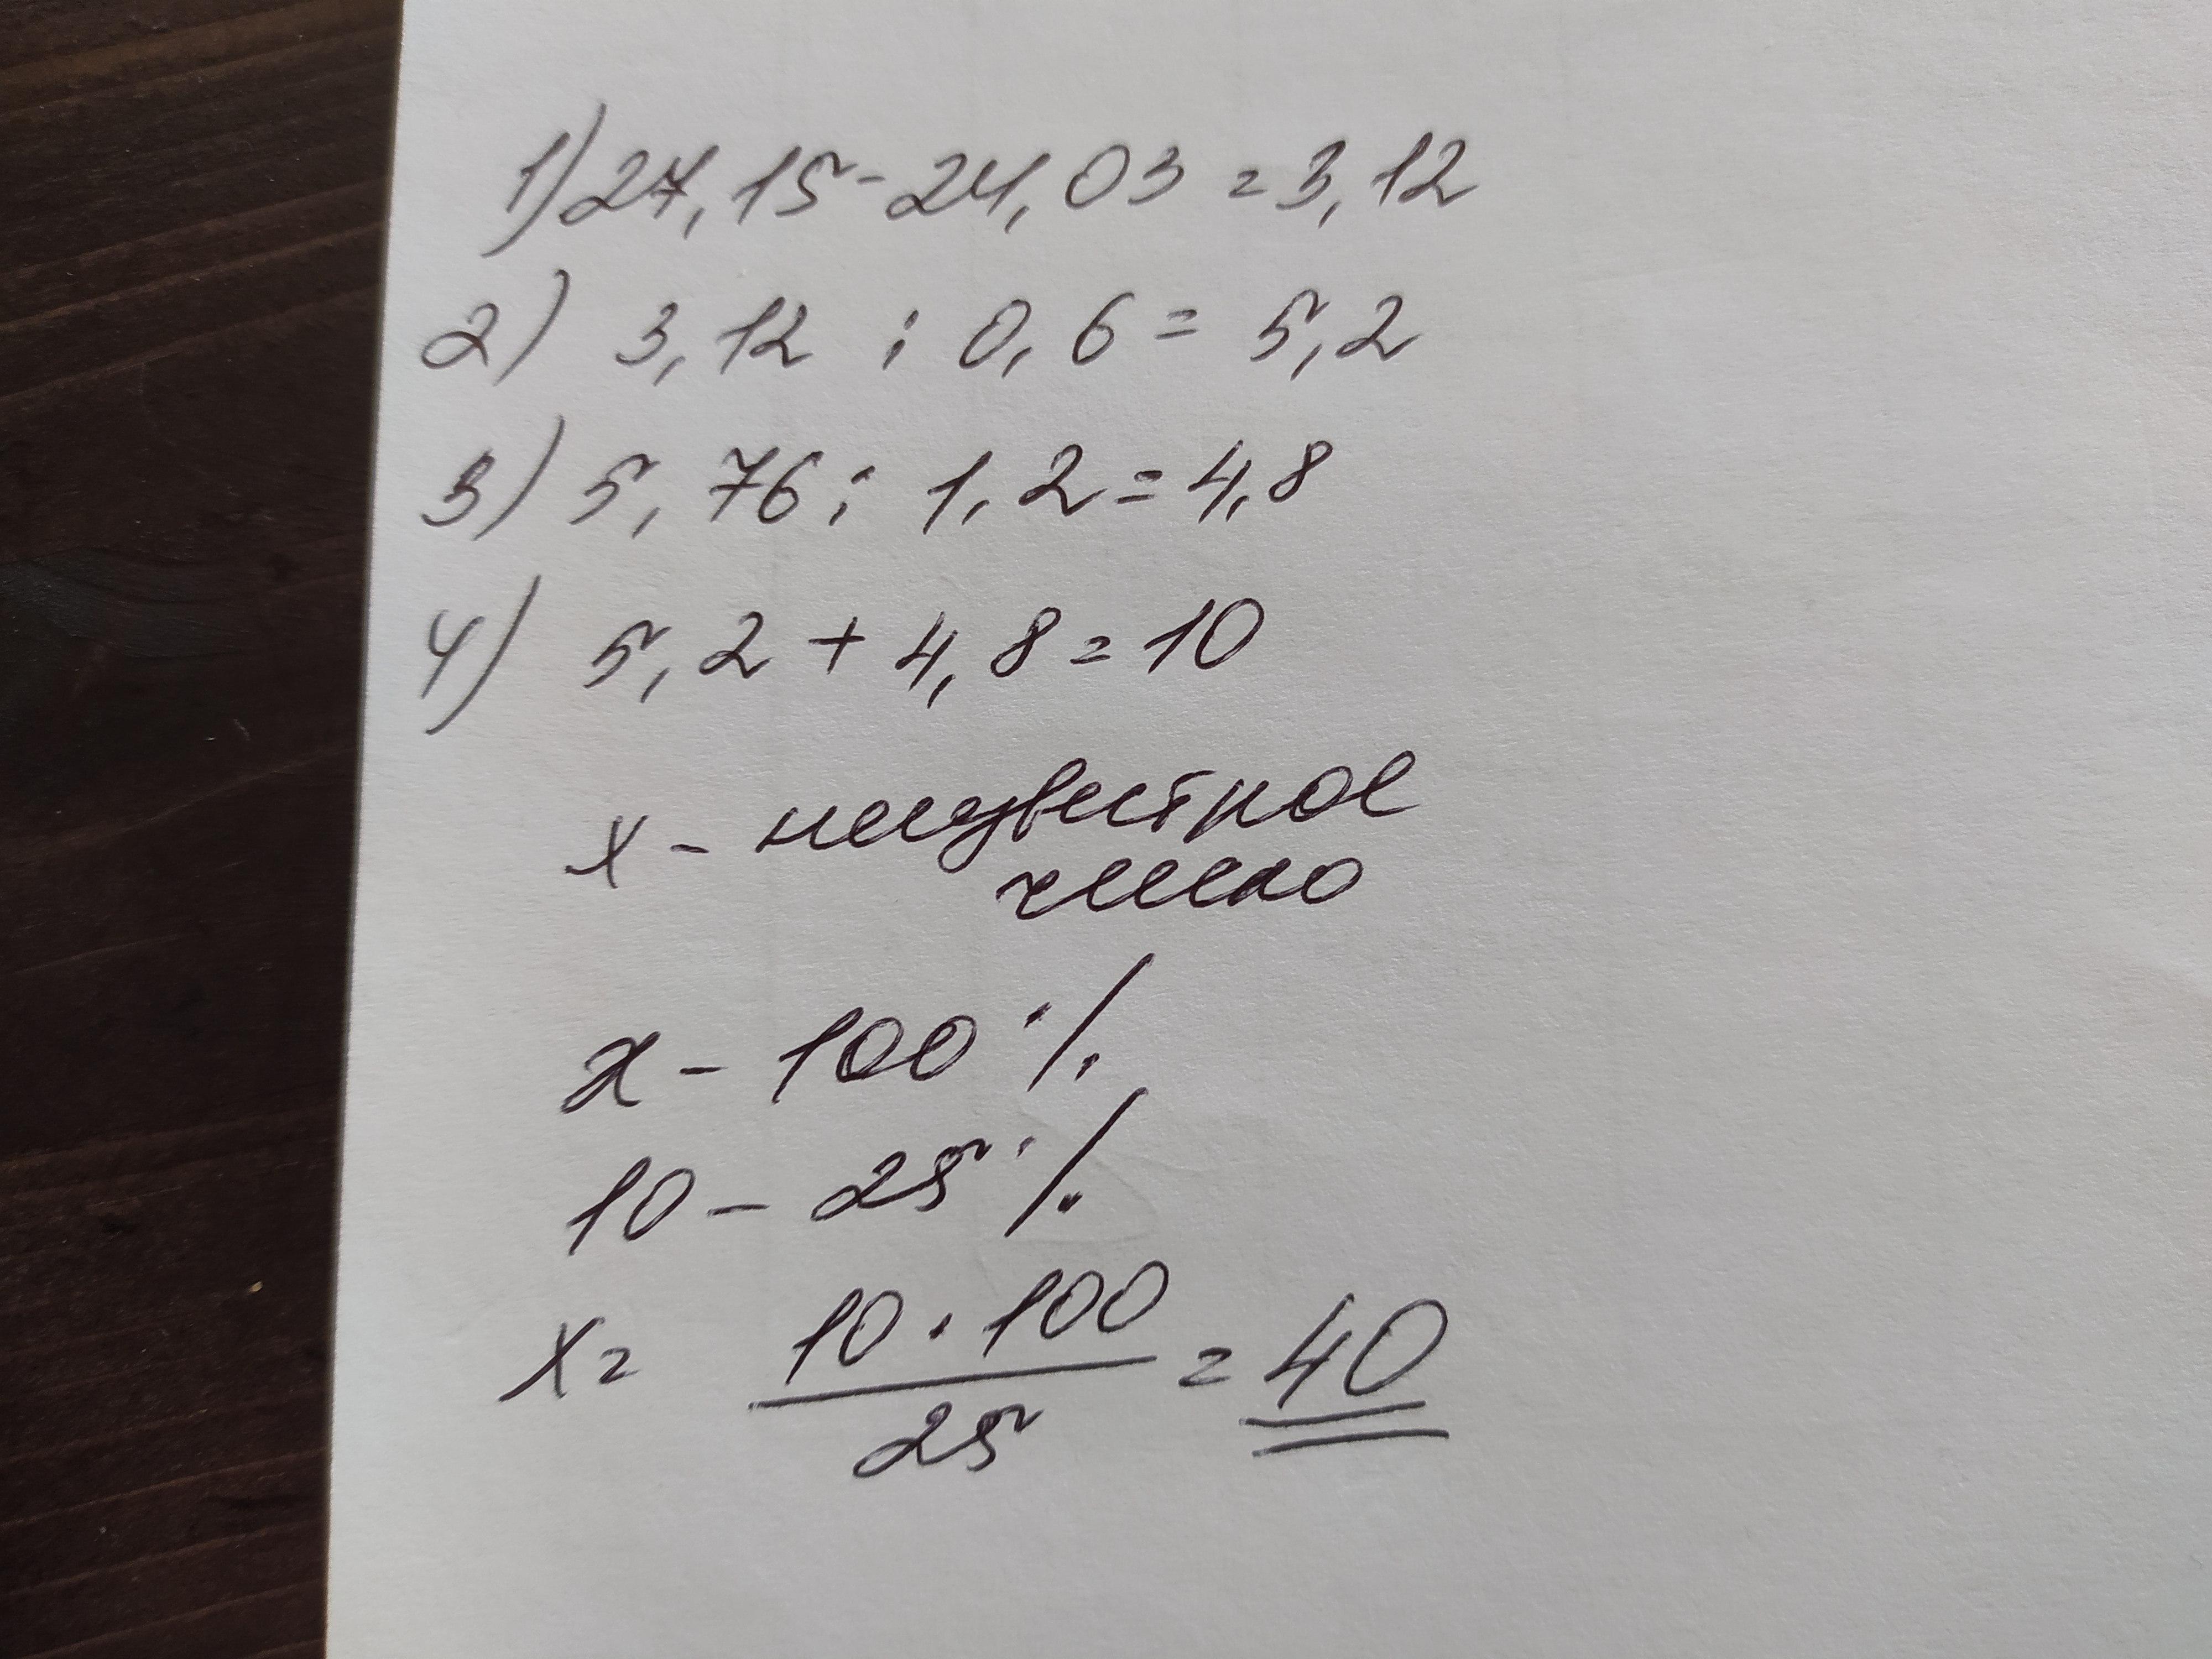 1) 27,15 - 24,03 = 3,12
2) 3,12 : 0,6 = 5,2
3) 5,76 : 1,2 = 4,8
4) 5,2 + 4,8 = 10
x - неизвестное
число
x - 100 %
10 - 25 %
x = 10 · 100 / 25 = 40